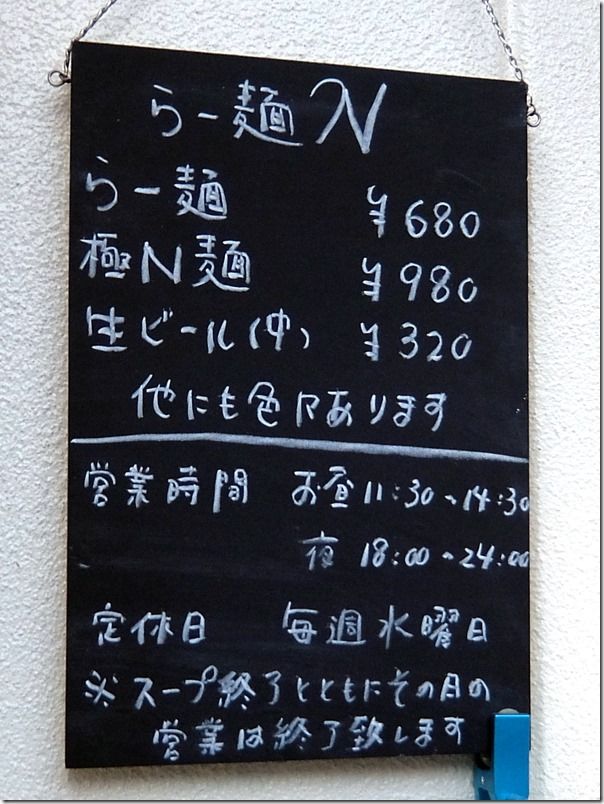 らー麺 N
らー麺 ¥680
極N麺 ¥980
生ビール(中) ¥320
他にも色々あります
営業時間 お昼 11:30~14:30
夜 18:00~24:00
定休日 毎週水曜日
※スープ終了とともにその日の
営業は終了致します